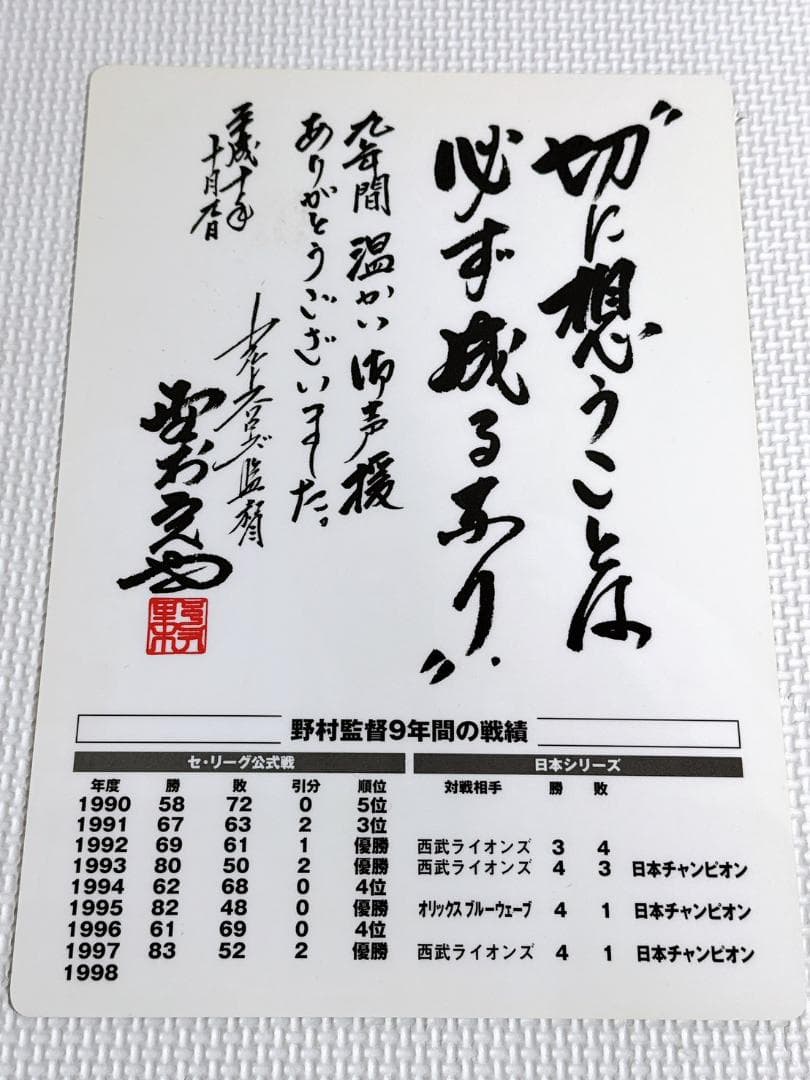 "切に想うことは
必ず成るなり"
九年間 温かい御声援
ありがとうございました。
平成十年
十月
監督
野村克也
野村監督9年間の戦績
セ・リーグ公式戦 日本シリーズ
年度 勝 敗 引分 順位 対戦相手 勝 敗
1990 58 72 0 5位
1991 67 63 2 3位
1992 69 61 1 優勝 西武ライオンズ 3 4
1993 80 50 2 優勝 西武ライオンズ 4 3 日本チャンピオン
1994 62 68 0 4位
1995 82 48 0 優勝 オリックス ブルーウェーブ 4 1 日本チャンピオン
1996 61 69 0 4位
1997 83 52 2 優勝 西武ライオンズ 4 1 日本チャンピオン
1998